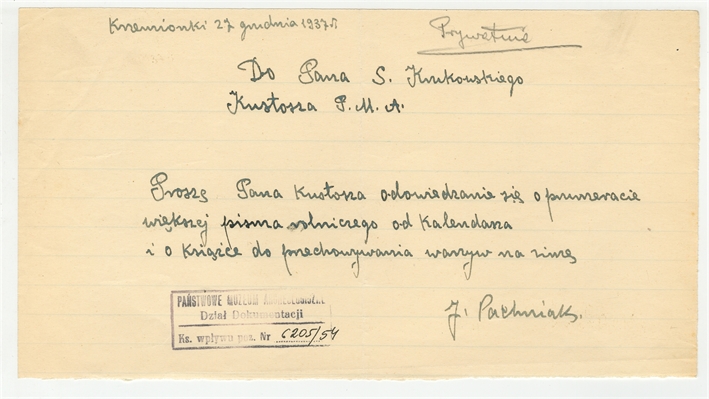 Krzemionki 27 grudnia 1937 r.
Prywatnie
Do Pana S. Krukowskiego
Kustosza P. M. A.
Proszę Pana Kustosza odowiedzanie się o prumeracie
większej pisma rolniczego od Kalendarza
i o książce do przechowywania warzyw na zimę
J. Pachniak.
PAŃSTWOWE MUZEUM ARCHEOLOGICZNE
Dział Dokumentacji
Ks. wpływu poz. Nr 6205/54